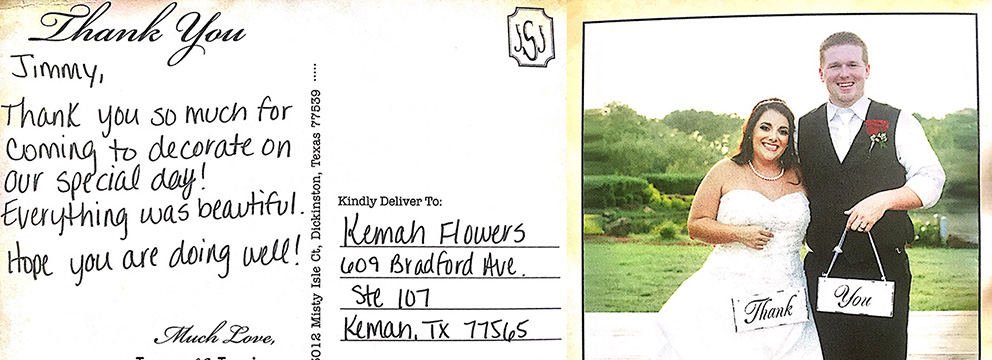 Thank You
Jimmy,
Thank you so much for
coming to decorate on
our special day!
Everything was beautiful.
Hope you are doing well!
Much Love,
5012 Misty Isle Ct, Dickinston, Texas 77539
JSJ
Kindly Deliver To:
Kemah Flowers
609 Bradford Ave.
Ste 107
Kemah, TX 77565
Thank
You